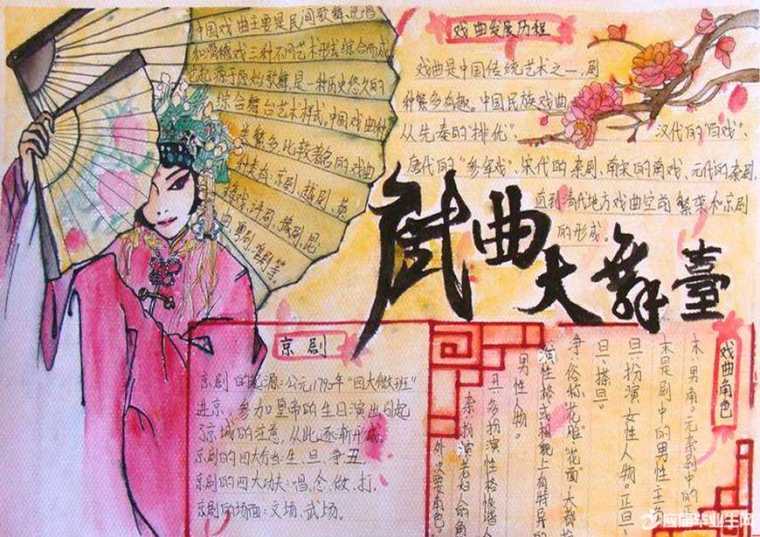 中国戏曲主要是民间歌舞、说唱
和滑稽戏三种不同艺术形式综合而成
它起源于原始歌舞,是一种历史悠久的
综合舞台艺术样式,中国戏曲种
类繁多比较著名的戏曲
种类有:京剧、越剧、黄
梅戏、评剧、豫剧、昆
曲、粤剧、淮剧等。
戏曲发展历程
戏曲是中国传统艺术之一,剧
种繁多有趣。中国民族戏曲,
从先秦的"排优"、汉代的"百戏"、
唐代的"参军戏"、宋代的杂剧、南宋的南戏、元代的杂剧,
直到清代地方戏曲空前繁荣和京剧
的形成。
戲曲大舞臺
京剧
京剧的起源:公元1790年"四大徽班"
进京,参加皇帝的生日演出引起
了京城的注意,从此逐渐形成
京剧的四大行当:生、旦、净、丑。
京剧的四大功夫:唱、念、做、打。
京剧的场面:文场、武场。
戏曲角色
末:男角。元杂剧中的
末是剧中的男性主角
旦:扮演女性人物。正旦、
旦、搽旦。
净:俗称"花脸""花面"大都扮
演性格或相貌上有特异的
男性人物。
丑:多扮演性格诙谐人
扮演老妇人的角
外:次要角色